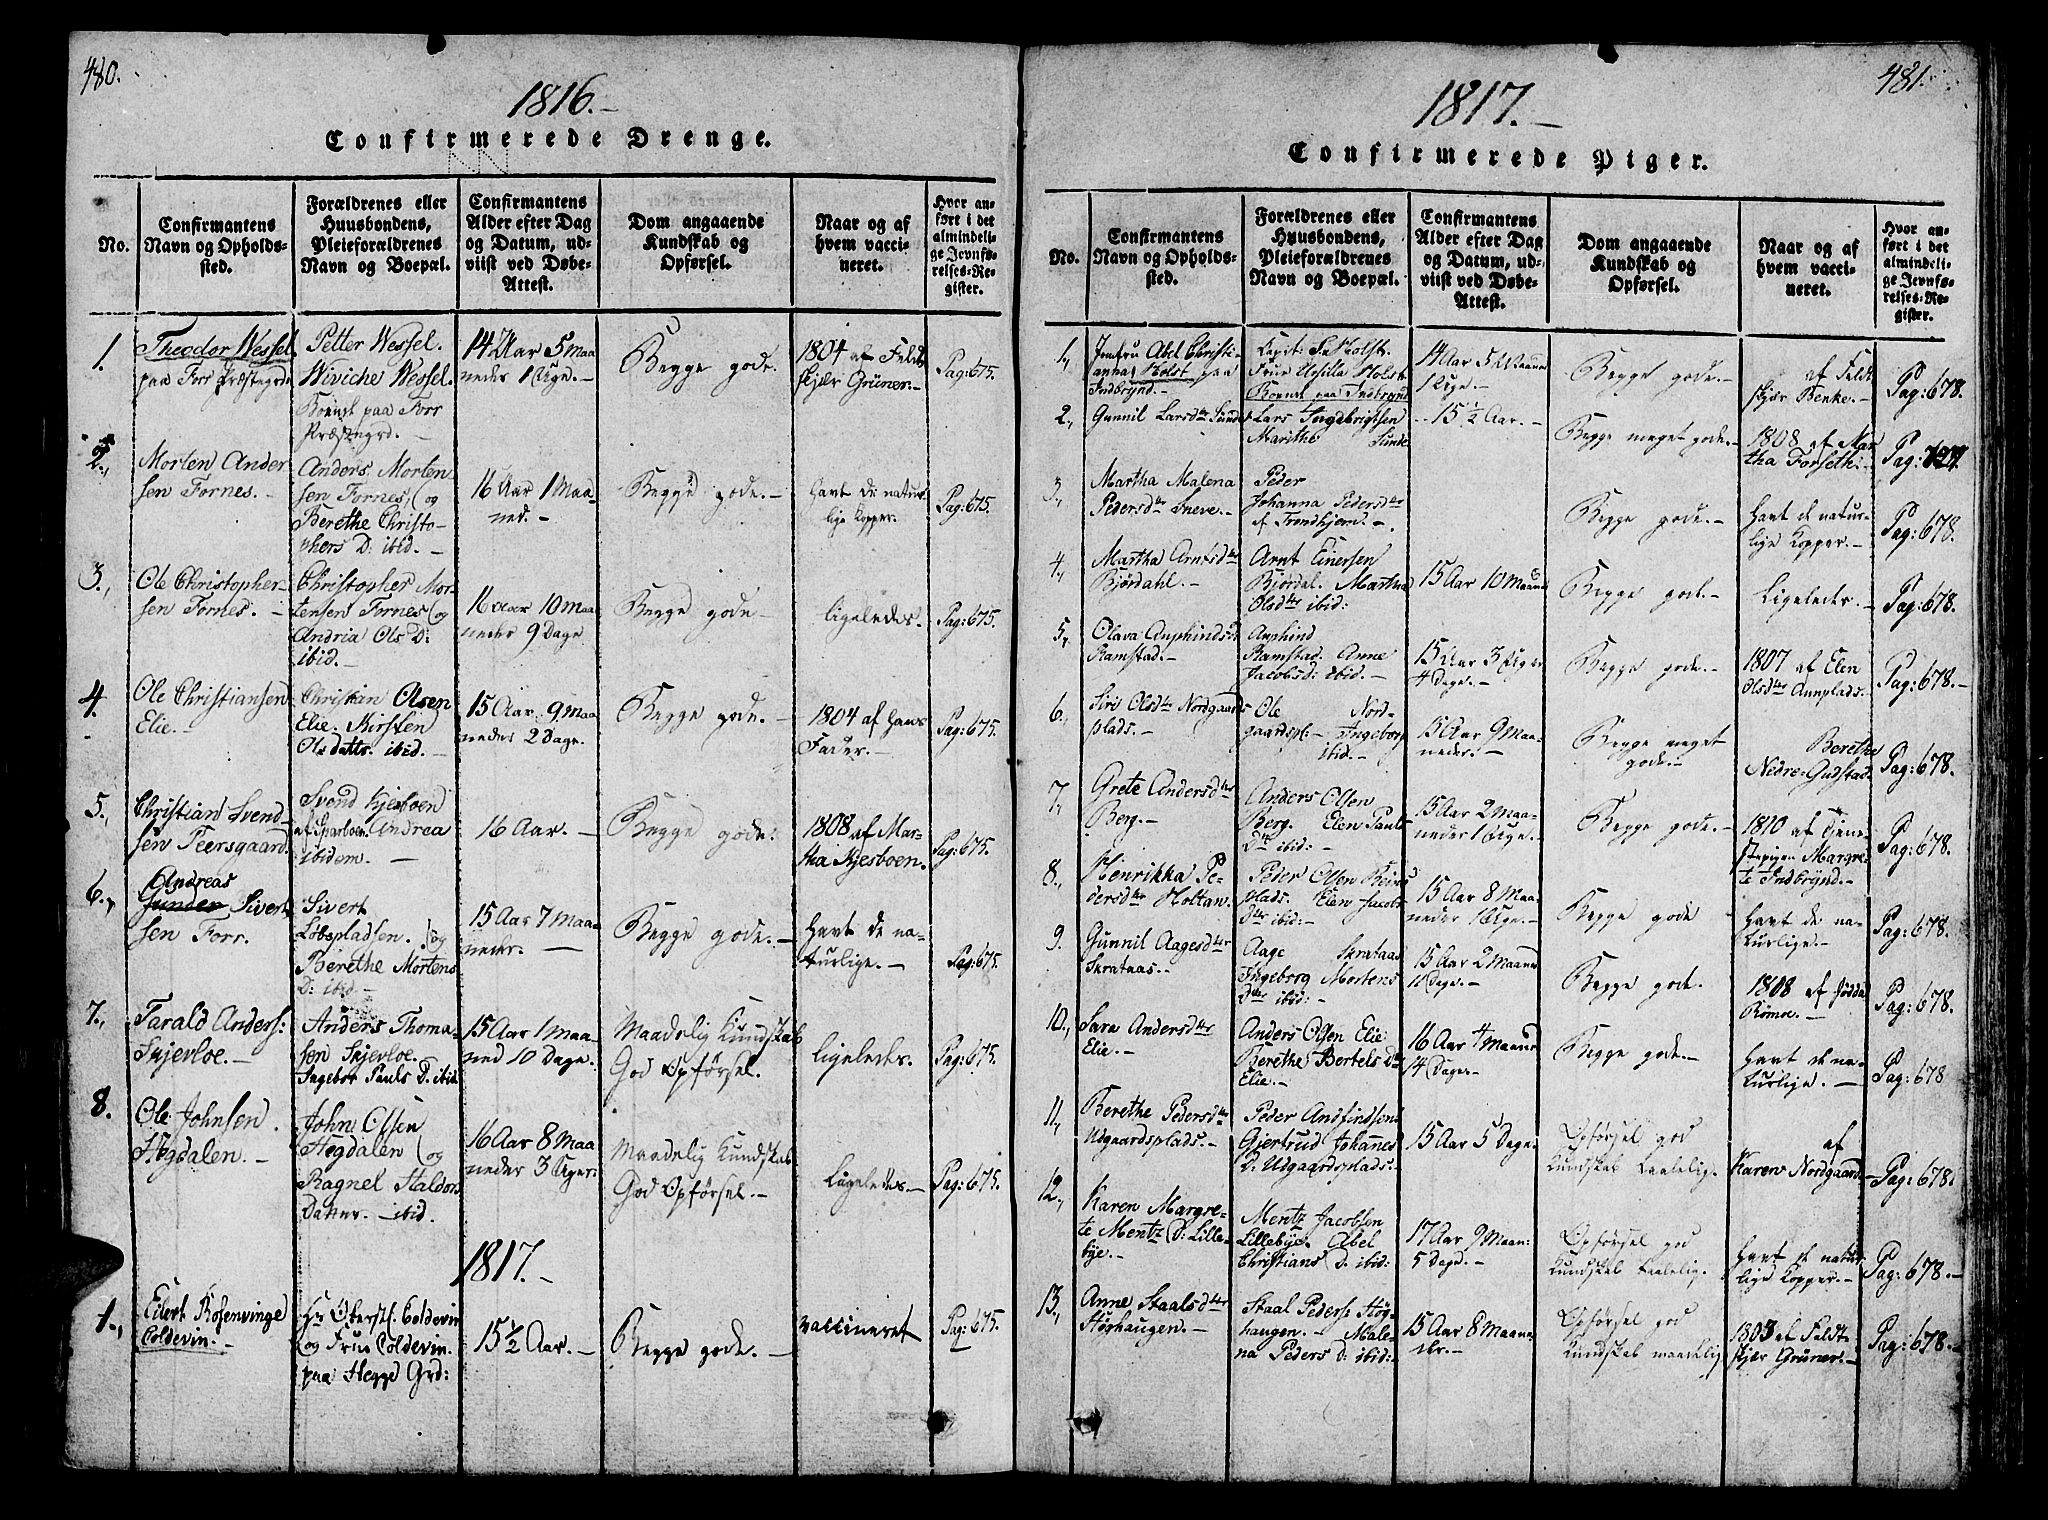 480.
1816.-
Confirmerede Drenge.
No.
Confirmantens
Navn og Opholds-
sted.
Forældrenes eller
Huusbondens,
Pleieforældrenes
Navn og Boepæl.
Confirmantens
Alder efter Dag
og Datum, ud-
viist ved Døbe-
Attest.
Dom angaaende
Kundskab og
Opførsel.
Naar og af
hvem vacci-
neret.
Hvor an-
ført i det
almindeli-
ge Jevnfø-
relses-Re-
gister.
1.
Theodor Wessel
paa Forr Præstegrd
Petter Wessel.
Wiviche Wessel.
Boende paa Forr
Præstegrd. -
14 Aar 5 Maa
neder 1 Uge. -
Begge gode.
1804 af Feldt
skjær Grüner. -
Pag: 675.
2.,
Morten Ander
sen Fornes. -
Anders Morten
sen Fornes, (og
Berethe Christo-
phers D: ibid. -
16 Aar 1 Maa-
ned. -
Begge gode. -
Havt de natur
lige Kopper.
Pag: 675.
3.,
Ole Christopher-
sen Fornes. -
Christopher Mor-
tensen Fornes (og
Andria Ols D:
ibid. -
16 Aar 10 Maa-
neder 9 Dage
Begge gode -
ligeledes. -
Pag: 675.
4.
Ole Christiansen
Elie. -
Christian Olsen
Elie. Kirsten
Ols dattr. ibid. -
15 Aar 9 Maa
neder 2 Dage.
Begge gode. -
1804 af hans
Fader. -
Pag: 675.
5.,
Christian Svend-
sen Peersgaard.
Svend Kjesboen
af Sparboen Andrea
ibidem. -
16 Aar. -
Begge gode.
1808 af Mar-
tha Kjesboen.
Pag: 675.
6.,
Andreas
Gunder Sivert
sen Forr.
Sivert
Løbspladsen. (og
Berethe Mortens
D: ibid. -
15 Aar 7 Maa-
neder. -
Begge gode. -
Havt de na-
turlige. -
Pag: 675.
7.,
Tarald Anders:
Skjerloe. -
Anders Thoma-
sen Skjerloe.
Ingebor Pauls D. ibid
15 Aar 1 Maa-
ned 10 Dage.
Maadelig Kundskab
God Opførsel.
ligeledes.
Pag: 675.
8.
Ole Johnsen
Hegdalen. -
John Olsen
Hegdalen (og
Ragnel Haldors
Datter. - ibid.
16 Aar 8 Maa
neder 3 Uger.
Maadelig Kundskab
God Opførsel. -
Ligeledes. -
Pag: 675.
1817. -
1.,
Eilert Rosenvinge
Coldevin. -
Hr. Oberstl. Coldevin
og Frue Coldevin.
paa Hegge Grd:
15 ½ Aar. -
Begge gode. -
vaccineret
Pag: 675.
481.
1817. -
Confirmerede Piger.
No.
Confirmantens
Navn og Opholds-
sted.
Forældrenes eller
Huusbondens,
Pleieforældrenes
Navn og Boepæl.
Confirmantens
Alder efter Dag
og Datum, ud-
viist ved Døbe-
Attest.
Dom angaaende
Kundskab og
Opførsel.
Naar og af
hvem vacci-
neret.
Hvor an-
ført i det
almindeli-
ge Jevnfø-
relses-Re-
gister.
1.,
Jomfru Abel Christi-
anna Holst paa
Indbrÿnd. -
Capit: Holst.
Frue Ursilla Holst
Boende paa Indbrÿnd
14 Aar 5 Maaned
1 Uge. -
Begge gode. -
af Feldt
skjær Benke. -
Pag: 678.
2.,
Gunnil Larsdtr Sunde
Lars Ingebrigtsen
Marithe Sunde
- 15 ½ Aar. -
Begge meget gode. -
1808 af Mar
tha Forseth.
Pag:
3.,
Martha Malena
Pedersdtr Sneve. -
Peder
Johanna Pedersdtr
af Trondhjem. -
Begge gode. -
Havt de natur-
lige Kopper. -
Pag: 678.
4.,
Martha Arntsdtr
Bjørdahl. -
Arnt Einersen
Bjørdal. Martha
Olsdtr ibid:
15 Aar 10 Maaned
Begge gode. -
Ligeledes. -
Pag: 678.
5.,
Olava Anphindsd
Ramstad. -
Anphind
Ramstad. Anne
Jacobsd: ibid. -
15 Aar 3 Uger
4 Dage. -
Begge gode. -
1807 af Elen
Olsdtr Annplads.
Pag: 678. -
6.,
Siri Olsdtr Nordgaards
plads. -
Ole Nord-
gaardspl: - Ingeborg
ibid. -
15 Aar 9 Maa-
neder. -
Begge meget
gode. -
Berethe
Nedre-Gudstad.
Pag: 678.
7.,
Grete Andersdtr
Berg. -
Anders Olsen
Berg. Elen Pauls
Dtr ibid: -
15 Aar 2 Maa-
neder 1 Uge. -
Begge gode. -
1810 af Tjene-
stepigen Margre-
te Indbrÿnd. -
Pag: 678.
8.,
Henrikka Pe-
dersdtr Holtan.
Peder Olsen
plads. Elen Jacobs
dtr ibid: -
15 Aar 8 Maa-
neder 1 Uge. -
Begge gode
Havt de na-
turlige. -
Pag: 678.
9.
Gunnil Aagesdtr
Skrataas. -
Aage Skrataas
Ingeborg Mortens
Dtr ibid: -
15 Aar 2 Maaned
11 Dage. -
Begge gode.
1808 af
Romoe. -
Pag: 678.
10.,
Sara Andersdtr
Elie. -
Anders Olsen Elie
Berethe Bertels Dtr
Elie. -
16 Aar 4 Maaned
14 Dage. -
Begge gode. -
Havt de na-
turlige. -
Pag: 678
11.,
Berethe Pedersdtr
Udgaardsplads. -
Peder Andfindsen
Gjertrud Johannes
D. Udgaardsplads.
15 Aar 5 Dage.
Opførsel god
Kundskab taalelig.
af
Karen Nordgaard. -
Pag: 678.
12.,
Karen Margre-
te Mentz (D: Lille-
bÿe. -
Mentz Jacobsen
Lillebÿe. Abel
Christians D: ibid:
17 Aar 9 Maan:
5 Dage. -
Opførsel god
Kundskab taalelig.
Havt de natur
lige Kopper. -
Pag: 678. -
13.,
Anne Staalsdtr
Høÿhaugen. -
Staal Peders: Høÿ-
haugen. - Male-
na Peders D: ibid:
15 Aar 8 Maan-
der. -
Opførsel god
Kundskab maadelig
1803 af Feldt-
skjær Grüner. -
Pag: 678.